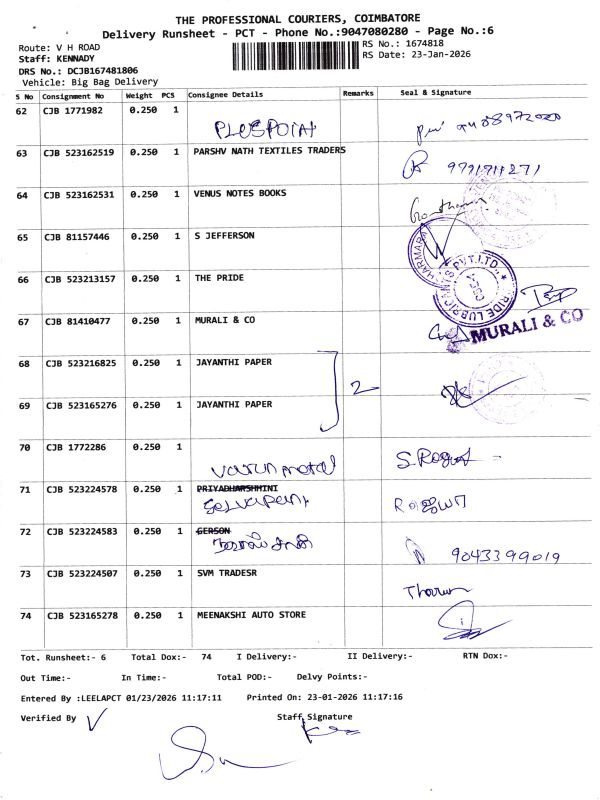 THE PROFESSIONAL COURIERS, COIMBATORE
Delivery Runsheet - PCT - Phone No.:9047080280 - Page No.:6
Route: V H ROAD
RS No.: 1674818
Staff: KENNADY
RS Date: 23-Jan-2026
DRS No.: DCJB167481806
Vehicle: Big Bag Delivery
S No Consignment No Weight PCS Consignee Details Remarks Seal & Signature
62 CJB 1771982 0.250 1
PLUSPOINT
63 CJB 523162519 0.250 1 PARSHV NATH TEXTILES TRADERS
64 CJB 523162531 0.250 1 VENUS NOTES BOOKS
65 CJB 81157446 0.250 1 S JEFFERSON
66 CJB 523213157 0.250 1 THE PRIDE
67 CJB 81410477 0.250 1 MURALI & CO
MURALI & CO
68 CJB 523216825 0.250 1 JAYANTHI PAPER
2
69 CJB 523165276 0.250 1 JAYANTHI PAPER
70 CJB 1772286 0.250 1
varun metal
71 CJB 523224578 0.250 1 PRIYADHARSHMINI
72 CJB 523224583 0.250 1 GERSON
9043399019
73 CJB 523224507 0.250 1 SVM TRADESR
Tharun
74 CJB 523165278 0.250 1 MEENAKSHI AUTO STORE
Tot. Runsheet:- 6 Total Dox:- 74 I Delivery:- II Delivery:- RTN Dox:-
Out Time:- In Time:- Total POD:- Delvy Points:-
Entered By :LEELAPCT 01/23/2026 11:17:11 Printed On: 23-01-2026 11:17:16
Verified By Staff Signature